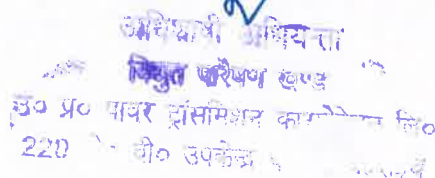 अधिशाषी अभियन्ता
विद्युत पारेषण खण्ड
उ० प्र० पावर ट्रांसमिशन कारपोरेशन लि०
220 वी० उपकेन्द्र